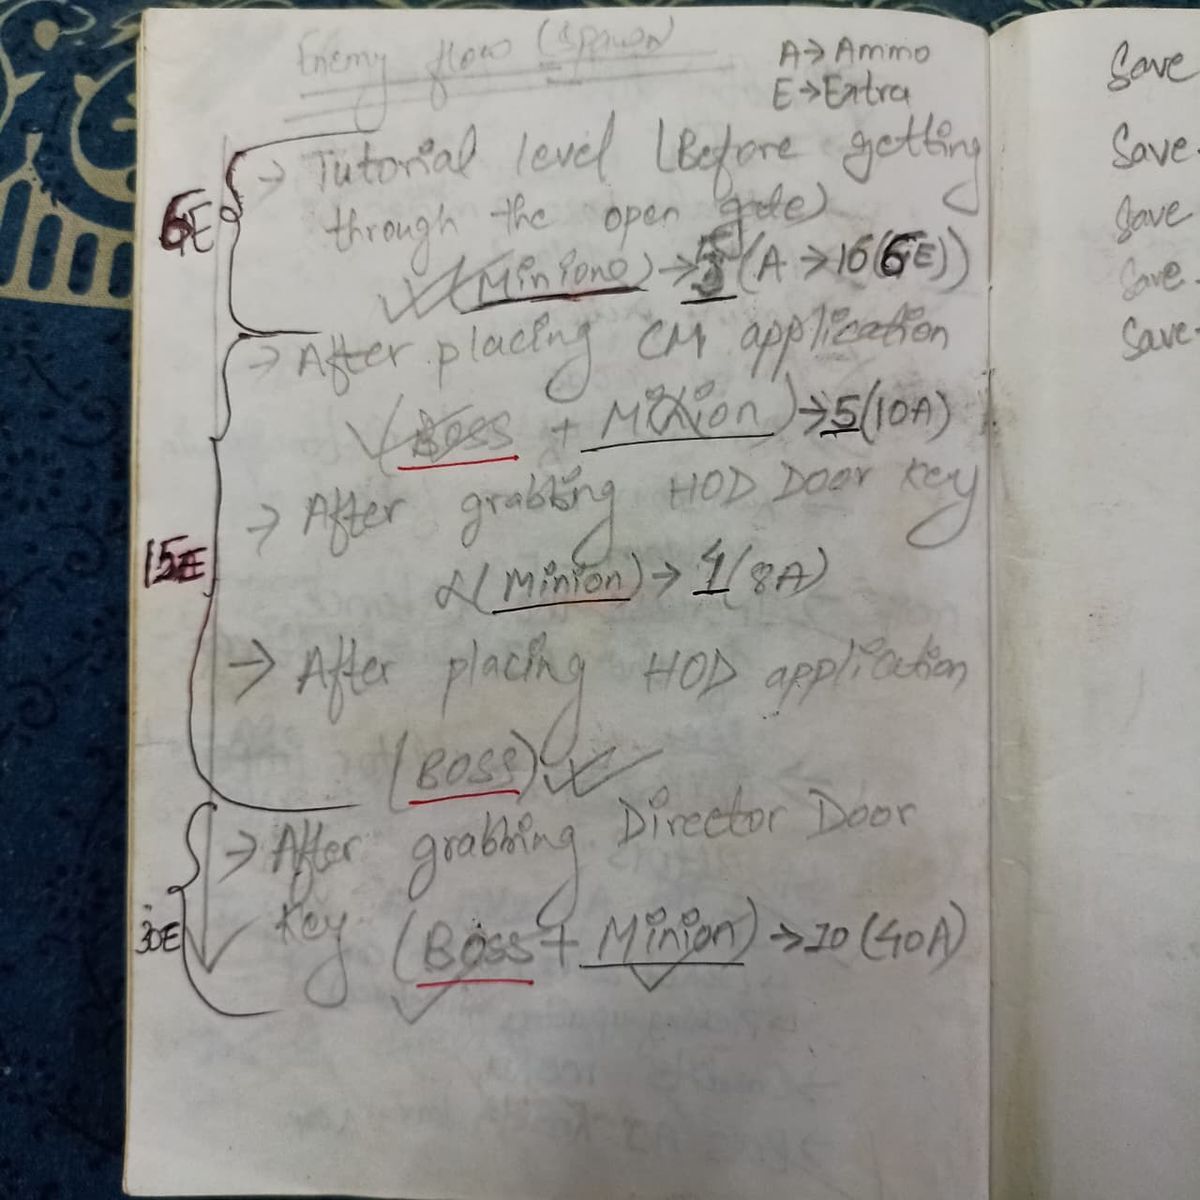 Enemy flow (Spawn)
A→Ammo
E→Extra
→ Tutorial level (Before getting
through the open gate)
6E
(Minions)→5(A→16(6E))
→ After placing CM application
(Boss + Minion)→5(10A)
→ After grabbing HOD Door Key
15E
(Minion)→4(8A)
→ After placing HOD application
(BOSS)
→ After grabbing Director Door
30E
Key (Boss + Minion)→20(40A)
Save
Save
Save
Save
Save